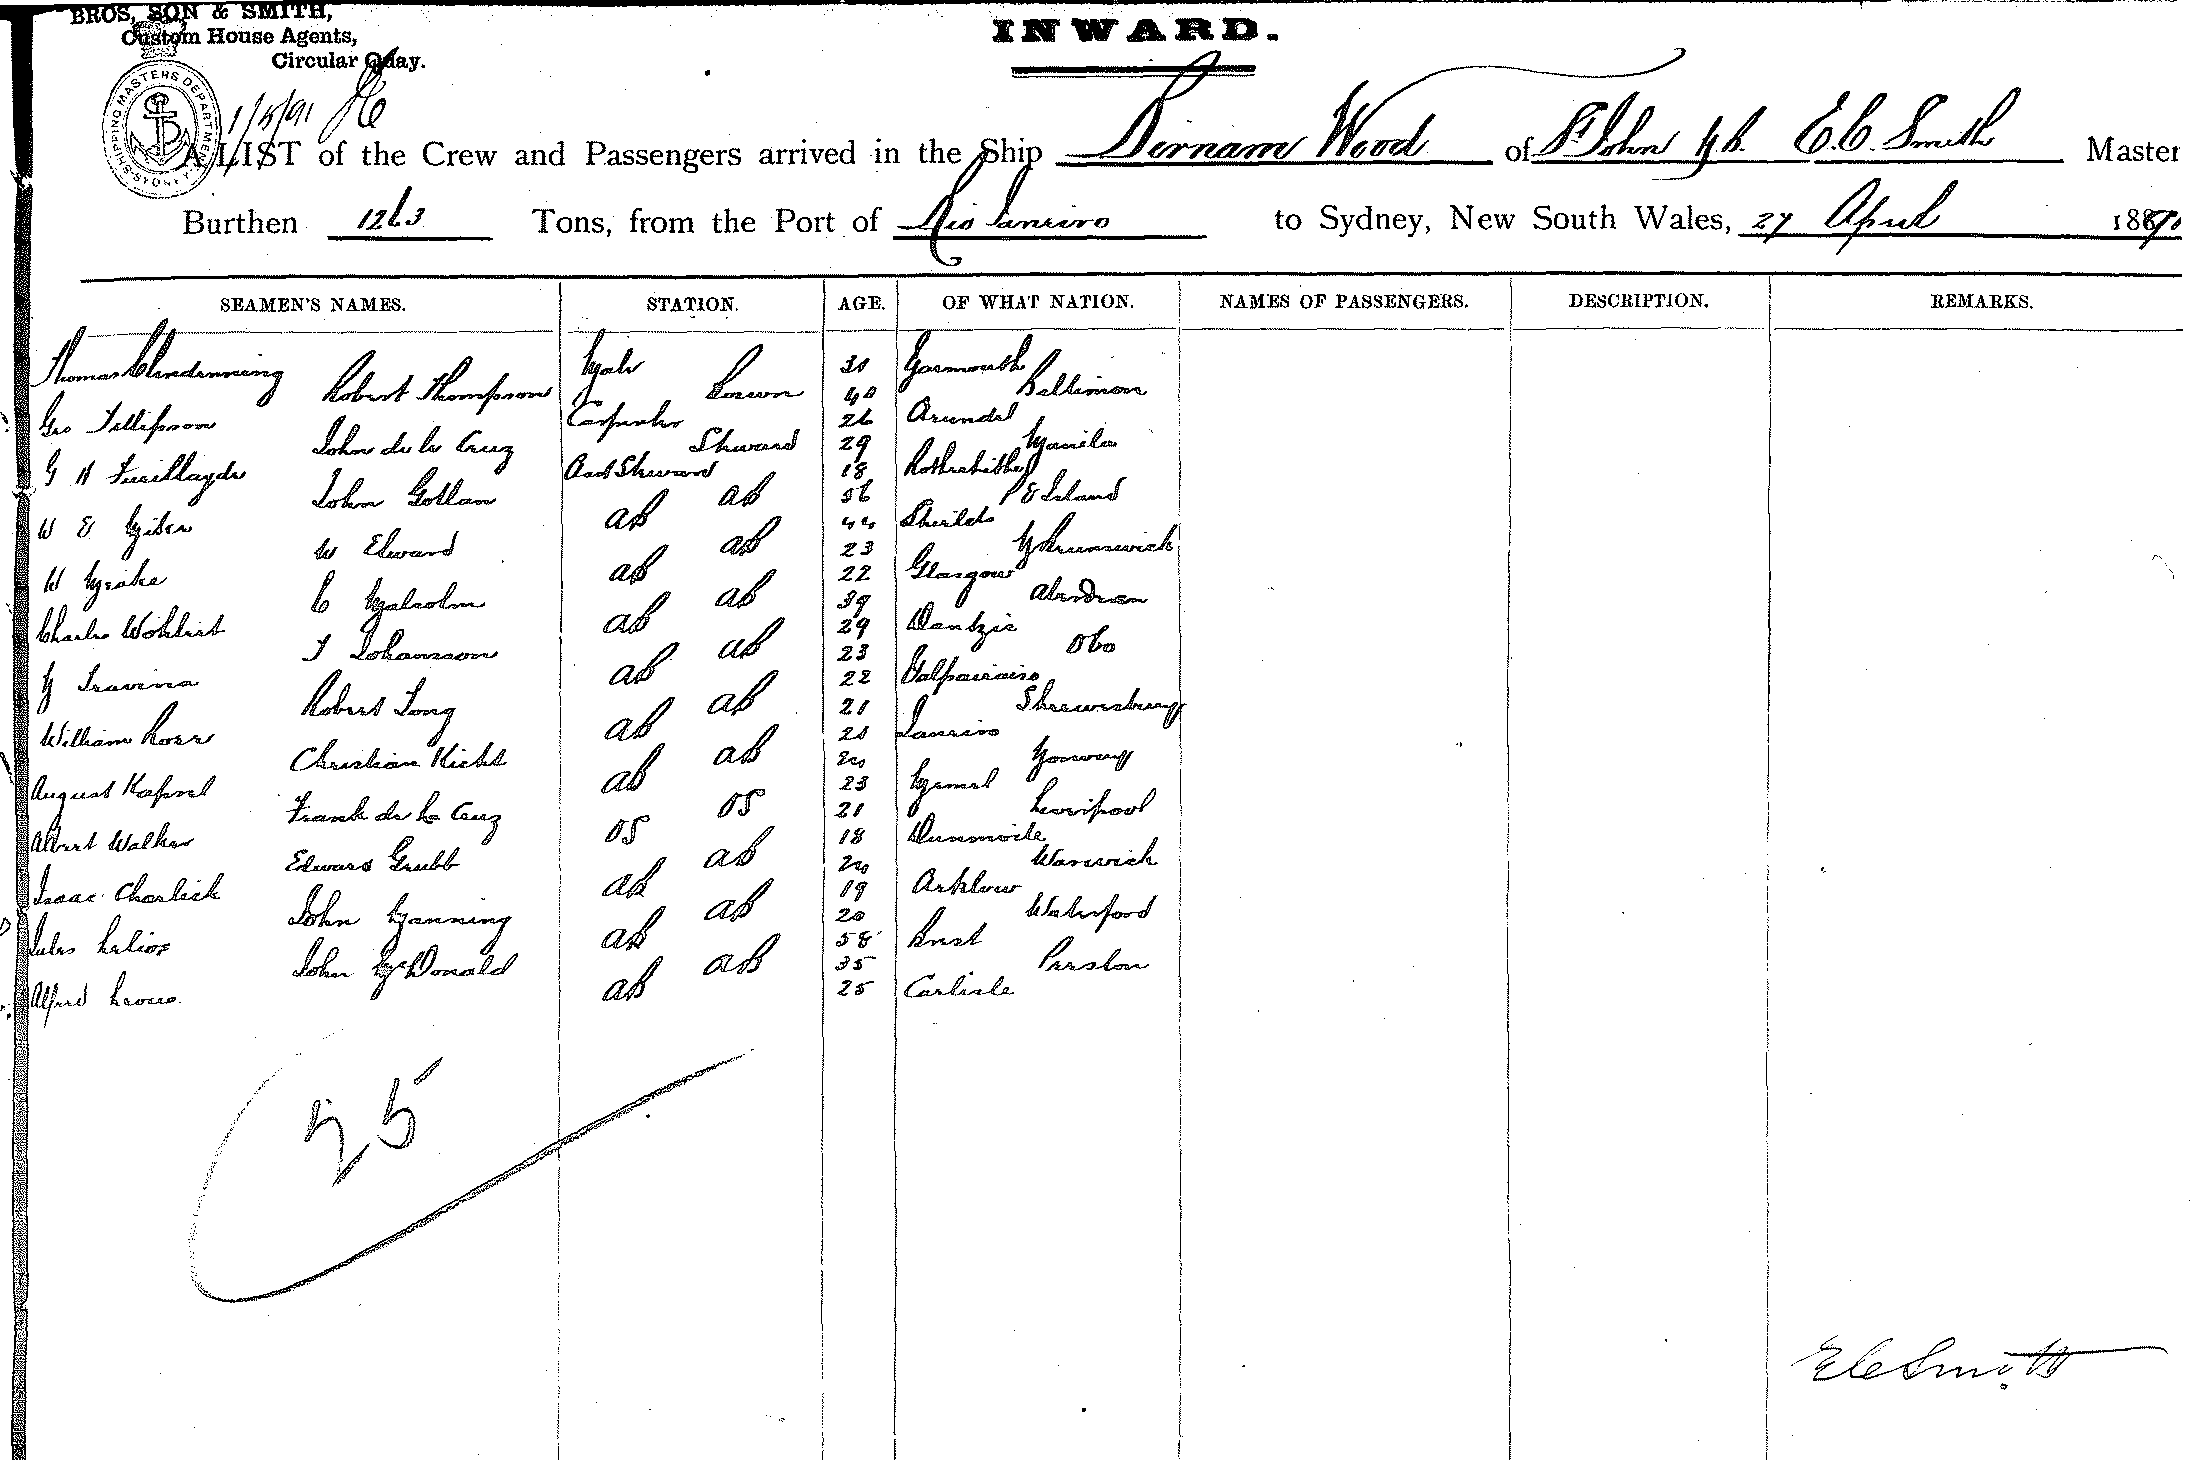 BROS, SON & SMITH,
Custom House Agents,
Circular Quay.
INWARD.
SHIPPING MASTERS DEPARTMENT SYDNEY
1/5/91
A LIST of the Crew and Passengers arrived in the Ship Birnam Wood of St John N.B. E.C. Smith Master
Burthen 1263 Tons, from the Port of Rio Janeiro to Sydney, New South Wales, 27 April 1890
SEAMEN'S NAMES. STATION. AGE. OF WHAT NATION. NAMES OF PASSENGERS. DESCRIPTION. REMARKS.
Thomas Clendenning Mate 31 Yarmouth
Robert Thompson Bosun 40 Baltimore
Geo Tillipson Carpenter 26 Arundel
John de la Cruz Steward 29 Manila
G H Asst Steward 18 Rotherhithe
John Gollan AB 56 P E Island
W E AB 44 Shields
W Edward AB 23 N Brunswick
W AB 22 Glasgow
C Malcolm AB 39 Aberdeen
Charles Wohlert AB 29 Dantzic
J Johansson AB 23 Obo
M Travina AB 22 Valparaiso
Robert Long AB 21 Shrewsbury
William Ross AB 21 Janeiro
Christian Kicht AB 20 Norway
August Kapsel AB 23 Memel
Frank de la Cruz OS 21 Liverpool
Albert Walker OS 18 Dunmoile
Edward Grubb AB 20 Warwick
Isaac Charlick AB 19 Arklow
John Manning AB 20 Waterford
Jules AB 58 Brest
John McDonald AB 35 Preston
Alfred AB 25 Carlisle
25
E C Smith